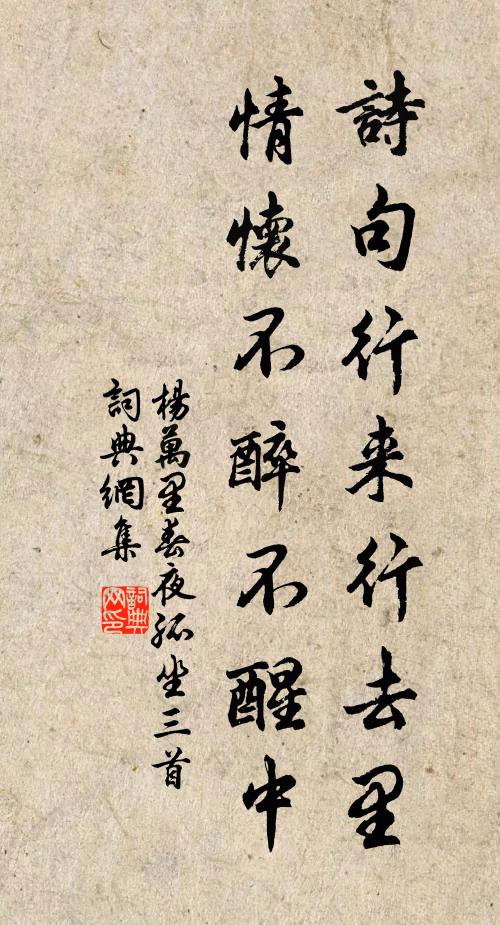 詩句行来行去里
情懷不醉不醒中
楊萬里春夜孤坐三首
詞典網集
詞典网印